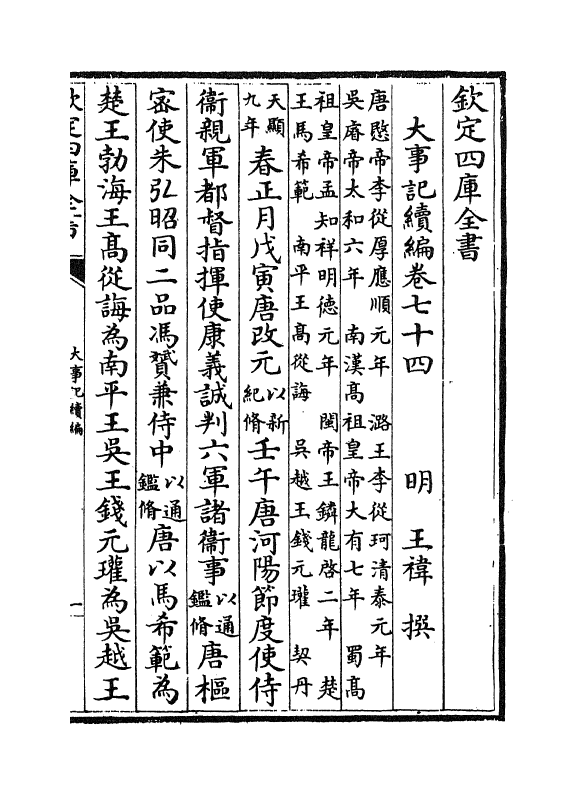 欽定四庫全書
大事記續編卷七十四 明 王禕 撰
唐愍帝李從厚應順元年 潞王李從珂清泰元年
吳睿帝太和六年 南漢高祖皇帝大有七年 蜀高
祖皇帝孟知祥明德元年 閩帝王鏻龍啓二年 楚
王馬希範 南平王高從誨 吳越王錢元瓘 契丹
天顯九年 春正月戊寅唐改元以新紀脩壬午唐河陽節度使侍
衞親軍都督指揮使康義誠判六軍諸衞事以通鑑脩唐樞
宻使朱弘昭同二品馮贇兼侍中以通鑑脩唐以馬希範為
楚王勃海王髙從誨為南平王吳王錢元瓘為吳越王
欽定四庫全書
大事記續編
一